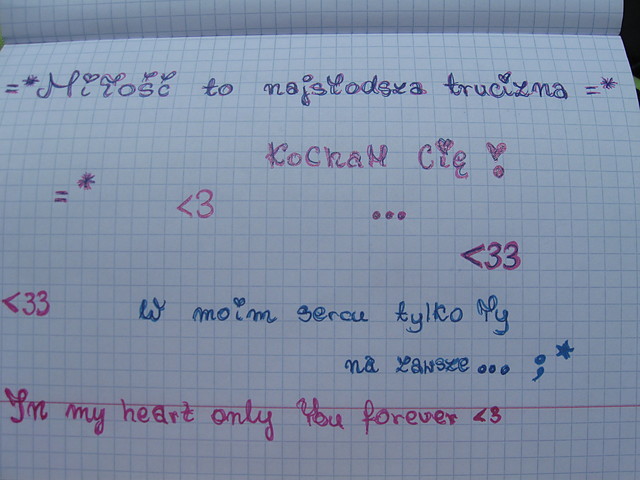 =*Miłość to najsłodsza trucizna =*
Kocham Cię !
=* <3 ...
<33
<33 W moim sercu tylko Ty
na zawsze... ;*
In my heart only You forever <3